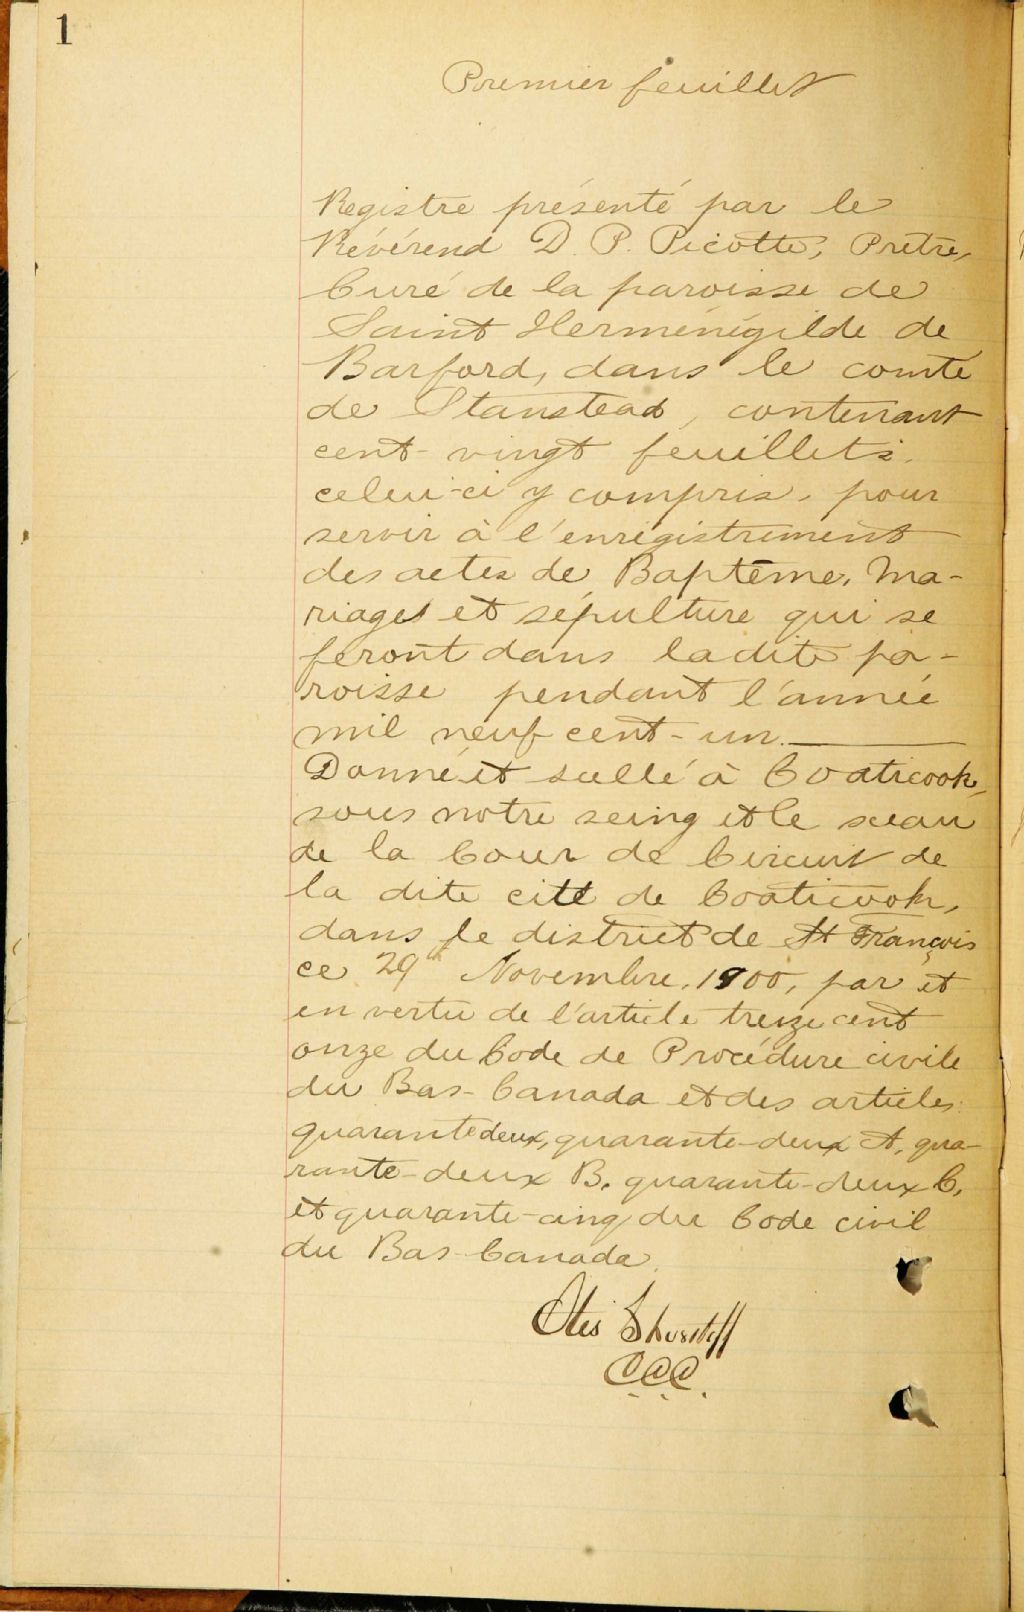 1
Premier feuillet
Registre présenté par le
Révérend D. P. Picotte, Prêtre,
Curé de la paroisse de
Saint Herménégilde de
Barford, dans le comté
de Stanstead, contenant
cent-vingt feuillets,
celui-ci y compris, pour
servir à l'enrégistrement
des actes de Baptême, Ma-
riages et sépulture qui se
feront dans ladite pa-
roisse pendant l'année
mil neuf cent-un.
Donné et scellé à Coaticook,
sous notre seing et le sceau
de la Cour de Circuit de
la dite cité de Coaticook,
dans le district de St François
ce 29 Novembre, 1900, par et
en vertu de l'article treize cent
onze du Code de Procédure civile
du Bas-Canada et des articles
quarante deux, quarante-deux A, qua-
rante-deux B, quarante-deux C,
et quarante-cinq du Code civil
du Bas-Canada.
Otis Shurtleff
C.C.C.